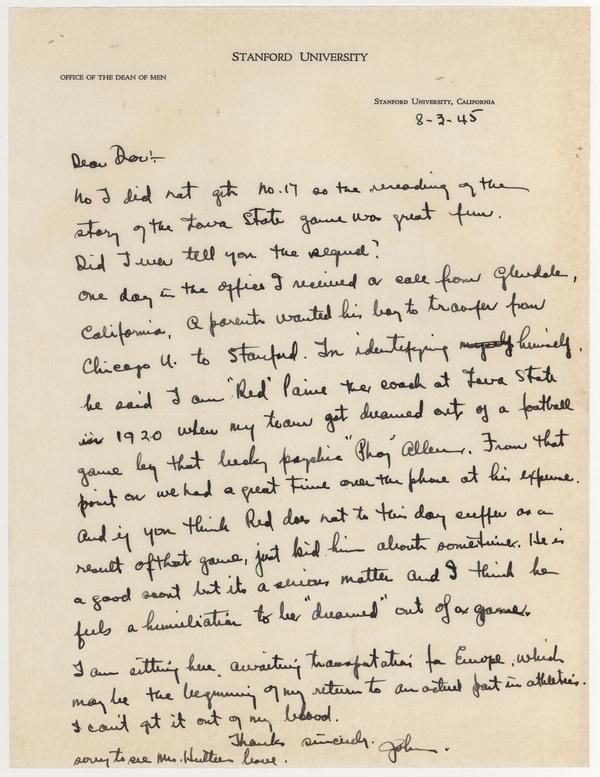 STANFORD UNIVERSITY
OFFICE OF THE DEAN OF MEN
STANFORD UNIVERSITY, CALIFORNIA
8-3-45
Dear Don:-
No I did not get No. 17 so the rereading of the
story of the Iowa State game was great fun.
Did I ever tell you the sequel?
One day in the office I received a call from Glendale,
California. A parent wanted his boy to transfer from
Chicago U. to Stanford. In identifying myself himself,
he said I am "Red" Paine the coach at Iowa State
in 1920 when my team got dreamed out of a football
game by that psychic "Phog" Allen. From that
point on we had a great time over the phone at his expense.
And if you think Red does not to this day suffer as a
result of that game, just kid him about it sometime. He is
a good scout but its a serious matter and I think he
feels a humiliation to be "dreamed" out of a game.
I am sitting here awaiting transportation for Europe, which
may be the beginning of my return to an actual part in athletics.
I can't get it out of my blood.
Thanks sincerely. John.
sorry to see Mrs. Hulteen leave.